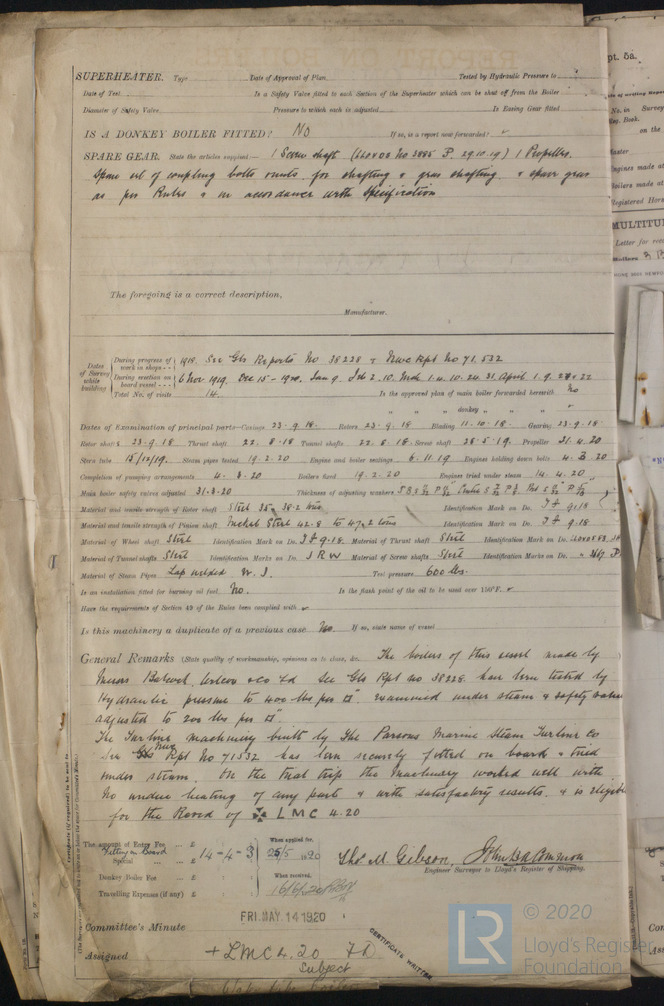 SUPERHEATER. Type Date of Approval of Plan Tested by Hydraulic Pressure to
Date of Test Is a Safety Valve fitted to each Section of the Superheater which can be shut off from the Boiler
Diameter of Safety Valve Pressure to which each is adjusted Is Easing Gear fitted
IS A DONKEY BOILER FITTED? No If so, is a report now forwarded?
SPARE GEAR. State the articles supplied:— 1 Screw shaft (LLOYDS No 3885 P. 29.10.19) 1 Propeller.
Spare set of coupling bolts & nuts for shafting & gear shafting & spare gear
as per Rules & in accordance with Specification
The foregoing is a correct description,
Manufacturer.
Dates of Survey while building
During progress of work in shops - - 1918. See Gls Reports No 38228 & Nwc Rpt No 71,532
During erection on board vessel - - - 6 Nov 1919. Dec 15 - 1920. Jan 9. Feb 2. 10. Mch 1. 4. 10. 24. 31. April 1. 9.
Total No. of visits 14. Is the approved plan of main boiler forwarded herewith No
" " donkey " " "
Dates of Examination of principal parts—Casings 23.9.18. Rotors 23.9.18 Blading 11.10.18. Gearing 23.9.18
Rotor shaft 23.9.18 Thrust shaft 22.8.18 Tunnel shafts 22.8.18. Screw shaft 28.5.19. Propeller 31.4.20
Stern tube 15/12/19. Steam pipes tested 19.2.20 Engine and boiler seatings 6.11.19 Engines holding down bolts 4.3.20
Completion of pumping arrangements 4.3.20 Boilers fixed 19.2.20 Engines tried under steam 14.4.20
Main boiler safety valves adjusted 31.3.20 Thickness of adjusting washers
Material and tensile strength of Rotor shaft Steel 35 38.2 tons Identification Mark on Do. 9.18
Material and tensile strength of Pinion shaft Nickel Steel 42.8 to 47.2 tons Identification Mark on Do. 9.18
Material of Wheel shaft Steel Identification Mark on Do. 9.18. Material of Thrust shaft Steel Identification Mark on Do.
Material of Tunnel shafts Steel Identification Marks on Do. J R W Material of Screw shafts Steel Identification Marks on Do.
Material of Steam Pipes Lap welded W.I. Test pressure 600 lbs.
Is an installation fitted for burning oil fuel No. Is the flash point of the oil to be used over 150°F.
Have the requirements of Section 49 of the Rules been complied with
Is this machinery a duplicate of a previous case No. If so, state name of vessel
General Remarks (State quality of workmanship, opinions as to class, &c. The boilers of this vessel made by
Messrs Babcock, Wilcox & Co Ld See Gls Rpt No 38228. have been tested by
Hydraulic pressure to 400 lbs per □". examined under steam & safety valves
adjusted to 200 lbs per □"
The Turbine machinery built by The Parsons Marine Steam Turbine Co
See Nwc Rpt No 71532 has been securely fitted on board & tried
under steam. On the trial trip the machinery worked well with
no undue heating of any part & with satisfactory results. & is eligible
for the Record of ✠ L M C 4.20
The amount of Entry Fee ... £ When applied for,
Fitting on Board
Special ... £ 14-4-3 25/5 1920
Donkey Boiler Fee ... £ When received,
Travelling Expenses (if any) £
Thos M. Gibson,
Engineer Surveyor to Lloyd's Register of Shipping.
FRI. MAY 14 1920
Committee's Minute
Assigned + LMC 4.20 FD
Subject
CERTIFICATE WRITTEN
LR © 2020
Lloyd's Register
Foundation
pt. 5a.
on the
Master
Engines made at
Boilers made at
Registered Hors
MULTITU